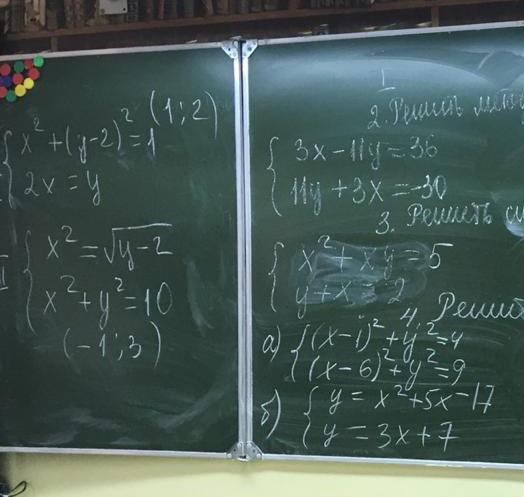 (1; 2)
x² + (y-2)² = 1
2x = y
II
x² = √y-2
x² + y² = 10
(-1; 3)
I
2. Решить
3x - 11y = 36
11y + 3x = -30
3. Решить
x² + xy = 5
y + x = 2
4. Решит
а) (x-1)² + y² = 4
(x-6)² + y² = 9
б) y = x² + 5x - 17
y = 3x + 7